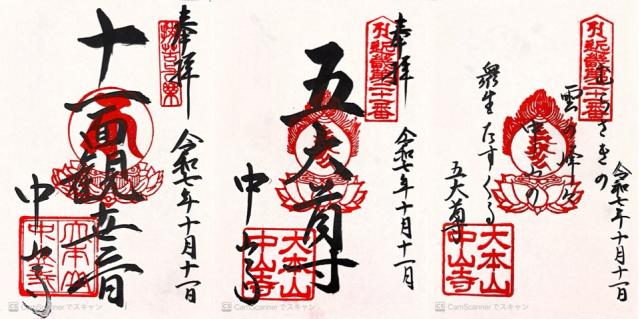 奉拝
十一面観世音
中山寺
令和七年十月十一日
大本山
中山寺
CS CamScanner でスキャン
奉拝
五大尊
中山寺
令和七年十月十一日
大本山
中山寺
CS CamScanner でスキャン
むらさきの
雲
中山の
衆生たすくる
五大尊
令和七年十月十一日
大本山
中山寺
CS CamScanner でスキャン